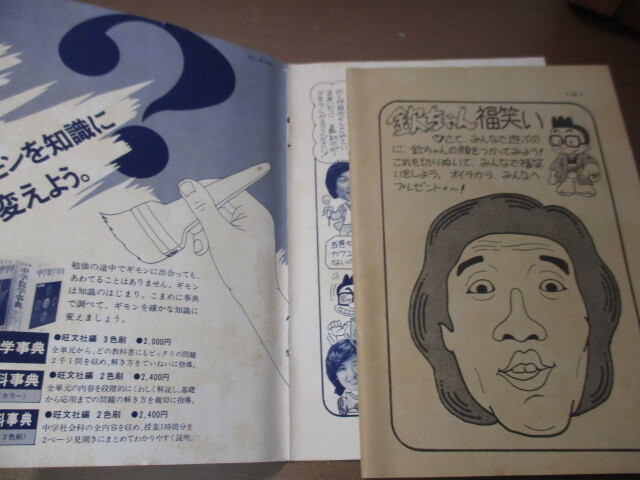 モンを知識に
変えよう。
勉強の途中でギモンに出合っても、
あわてることはありません。ギモン
は知識のはじまり。こまめに事典
で調べて、ギモンを確かな知識に
変えましょう。
中学数学事典
学事典
●旺文社編 3色刷 ●2,000円
全単元から、どの教科書にもピッタリの問題
2千1問を収め、解き方をていねいに指導。
科事典
カラー)
●旺文社編 2色刷 ●2,400円
全単元の内容を段階的にくわしく解説し、基礎
から応用までの問題の解き方を親切に指導。
科事典
3色刷)
●旺文社編 2色刷 ●2,400円
中学社会科の全内容を収め、授業1時間分を
2ページ見開きにまとめてわかりやすく説明。
欽ちゃん福笑い
さて、みんなで遊ぶの
に、欽ちゃんの顔をつかってみよう!
これを切りぬいて、みんなで福笑
いをしよう。オイラから、みんなへ
プレゼントォ〜!